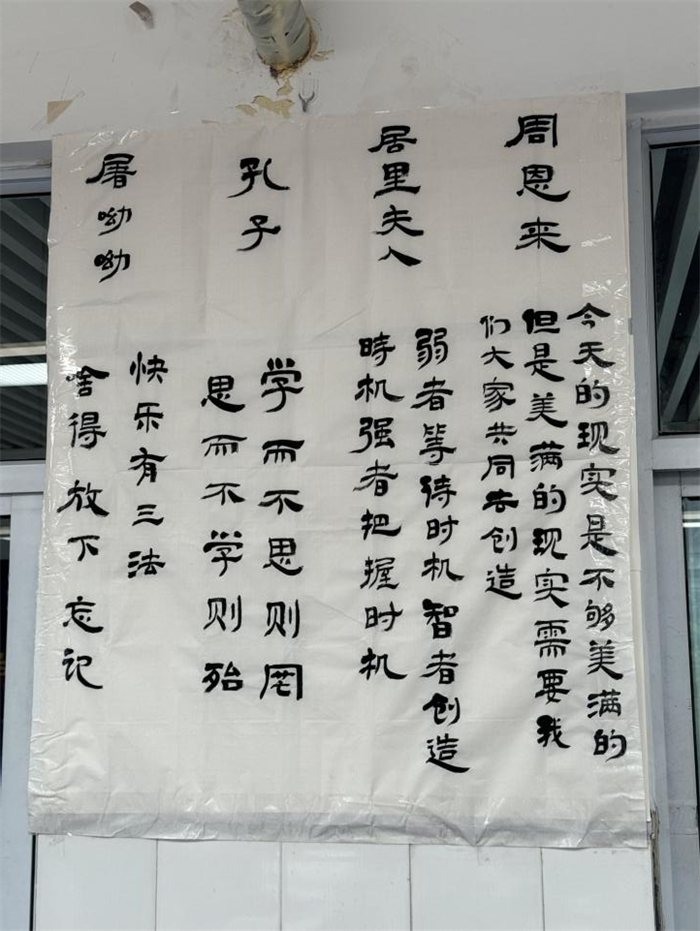 周恩来
今天的现实是不够美满的
但是美满的现实需要我
们大家共同去创造
居里夫人
弱者等待时机智者创造
時机强者把握时机
孔子
学而不思则罔
思而不学则殆
屠呦呦
快乐有三法
啥得放下忘记